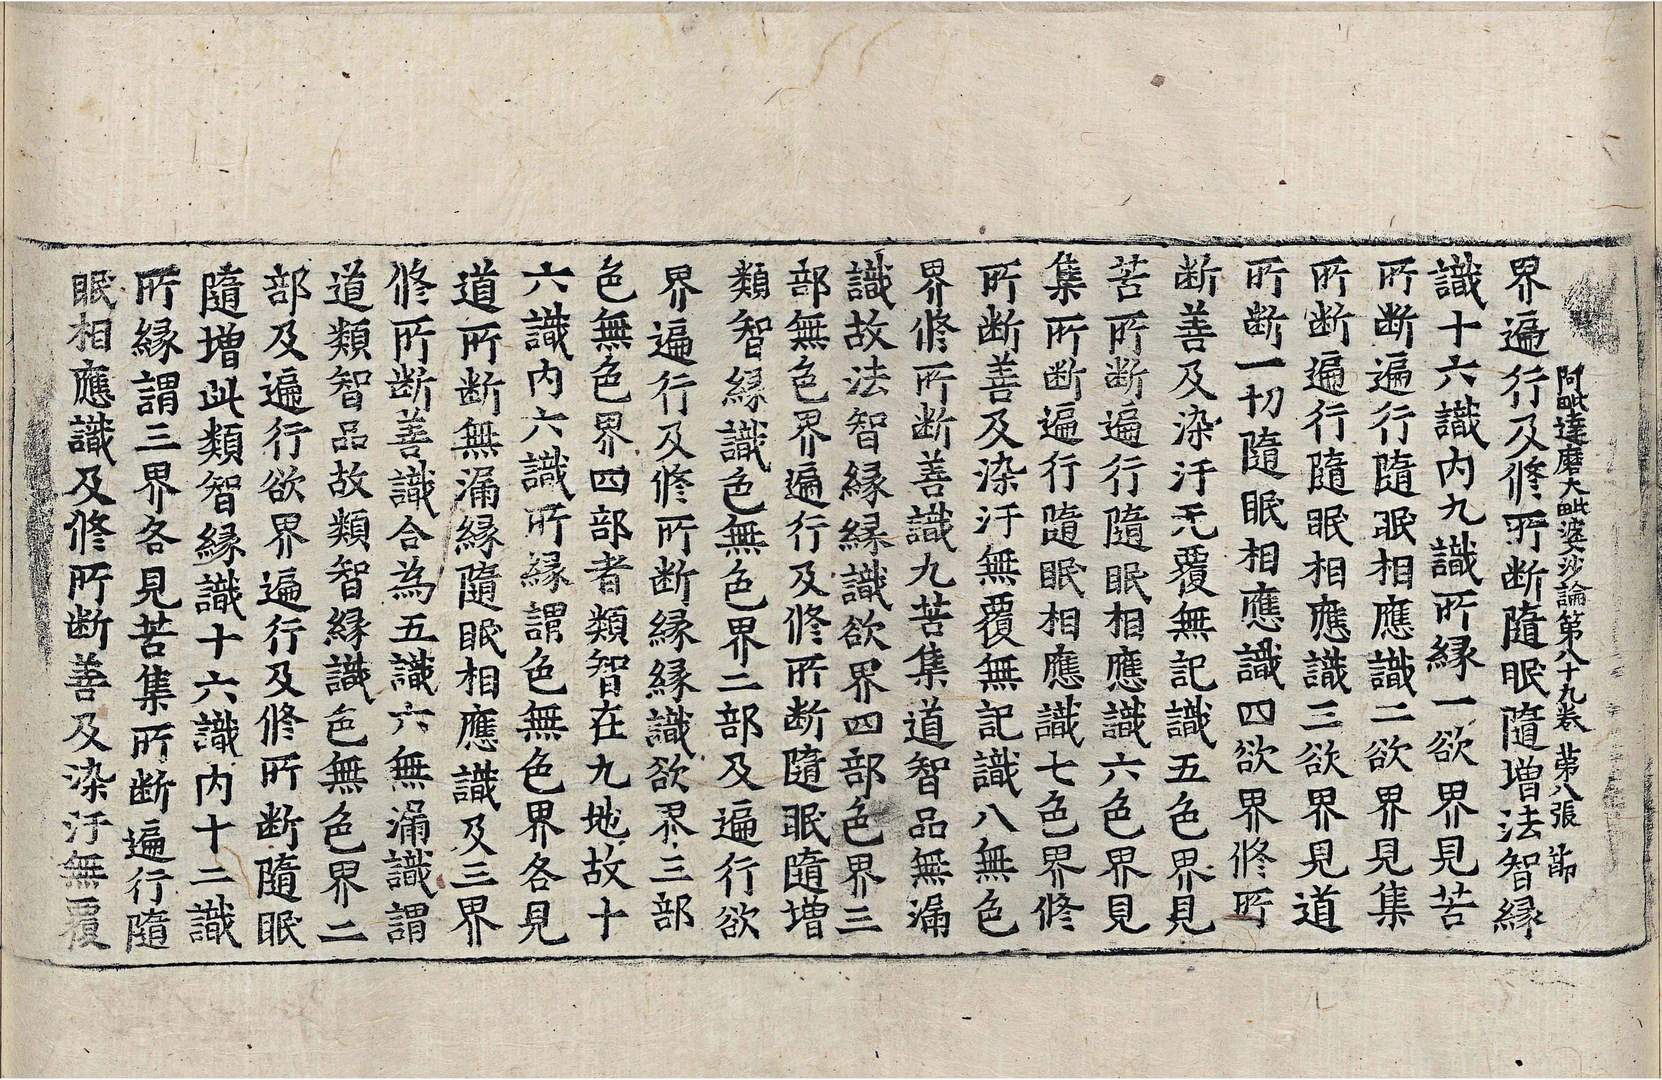 阿毗達磨大毗婆沙論第八十九卷 第八張 節
界遍行及修所断隨眠隨增法智緣
識十六識内九識所縁一欲界見苦
所断遍行隨眠相應識二欲界見集
所断遍行隨眠相應識三欲界見道
所断一切隨眠相應識四欲界修所
断善及染汙无覆無記識五色界見
苦所断遍行隨眠相應識六色界見
集所断遍行隨眠相應識七色界修
所断善及染汙無覆無記識八無色
界修所断善識九苦集道智品無漏
識故法智縁縁識欲界四部色界三
部無色界遍行及修所断隨眠隨增
類智縁識色無色界二部及遍行欲
界遍行及修所断縁縁識欲界三部
色無色界四部者類智在九地故十
六識内六識所縁謂色無色界各見
道所断無漏縁隨眠相應識及三界
修所断善識合為五識六無漏識謂
道類智品故類智縁識色無色界二
部及遍行欲界遍行及修所断隨眠
隨增此類智縁識十六識内十二識
所縁謂三界各見苦集所断遍行隨
眠相應識及修所断善及染汙無覆